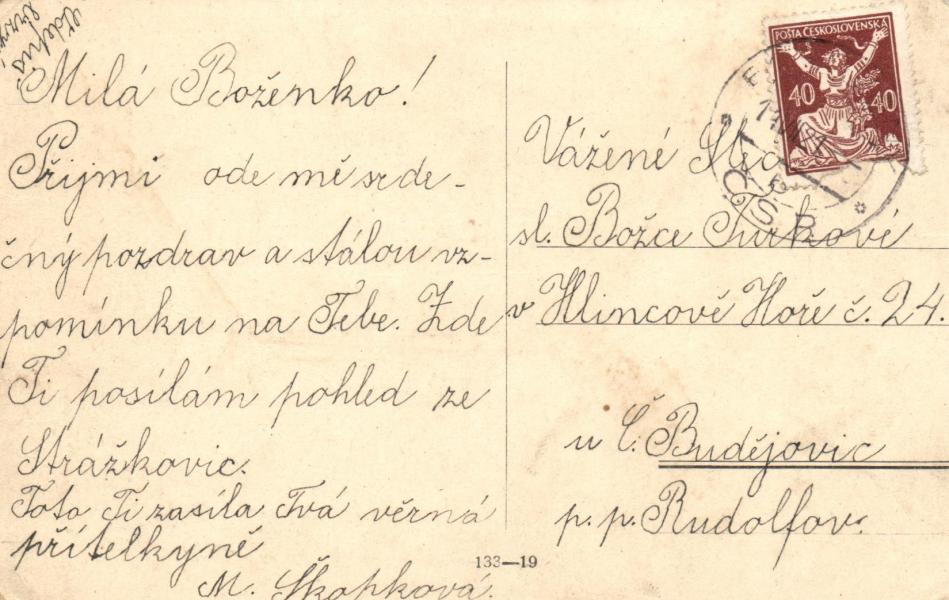 Milá Boženko!
Přijmi ode mě srde-
čný pozdrav a stálou vz-
pomínku na Tebe. Zde
Ti posílám pohled ze
Strážkovic.
Toto Ti zasíla Tvá věrná
přítelkyně
M. Škopková.
POŠTA ČESKOSLOVENSKÁ
40 40
ČSR
Vážené
sl. Božce Turkové
v Hlincové Hoře č. 24.
u Č. Budějovic
p. p. Rudolfov.
133—19